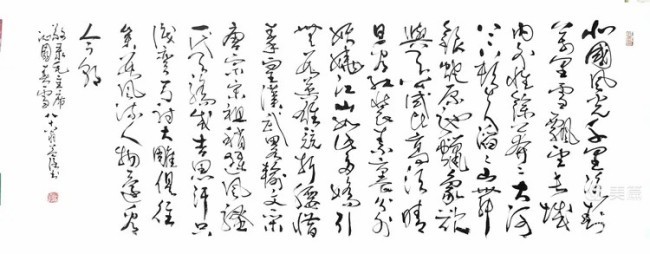 北國風光千里冰封
萬里雪飄望長城
內外惟餘莽〻大河
上下頓失滔〻山舞
銀蛇原馳蠟象欲
與天公試比高須晴
日看紅裝素裹分外
妖嬈江山如此多嬌引
無數英雄競折腰惜
秦皇漢武略輸文采
唐宗宋祖稍遜風騷
一代天驕成吉思汗只
識彎弓射大雕俱往
矣數風流人物還看
今朝
敬录毛主席
沁園春雪 八十翁 书